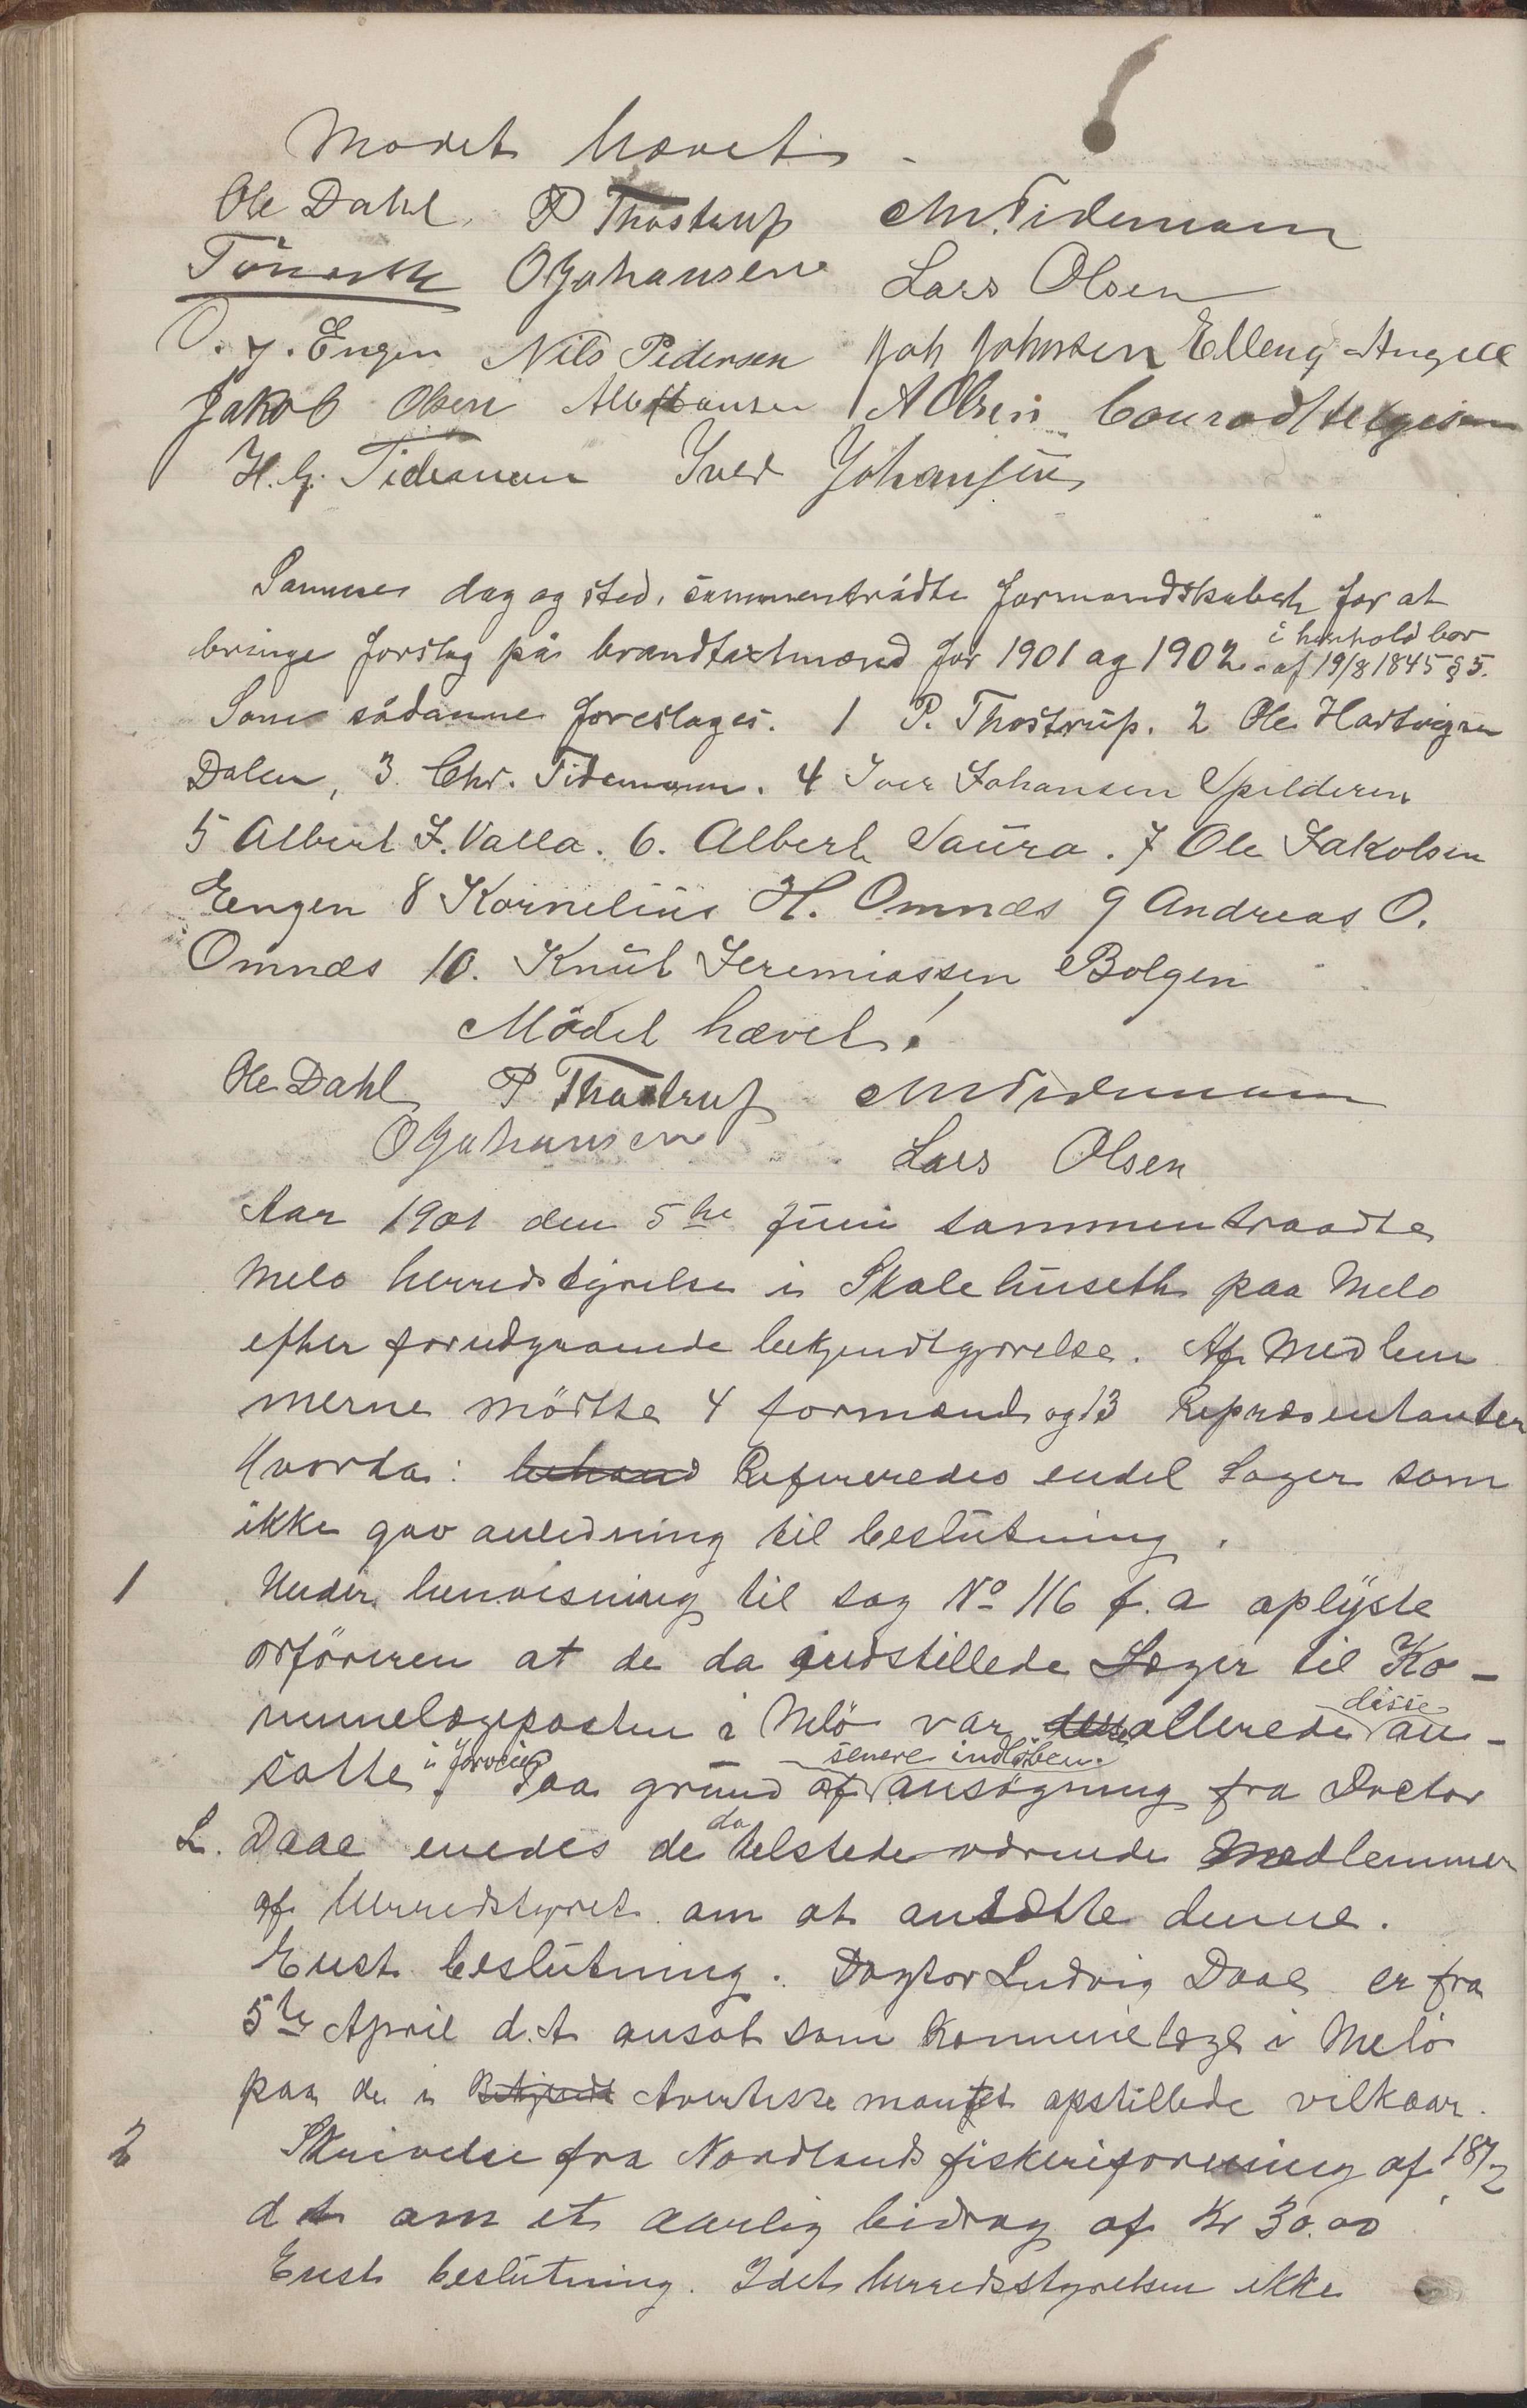 Mødet hævet.
Ole Dahl. P Thostrup Chr. Tidemann
O Johansen Lars Olsen
O. J. Engen Nils Pedersen Joh Johnsen Elling Angell
Jakob Olsen Alb Hansen A Olsen Conrad Helgesen
H. G. Tidemann Iver Johansen
Sammes dag og sted, sammentrådte formandskabet for at
bringe forslag på brandtaxtmænd for 1901 og 1902. i henhold lov
af 19/8 1845 § 5.
Som sådanne foreslages. 1 P. Thostrup. 2 Ole Hartvigsen
Dalen, 3. Chr. Tidemann. 4 Iver Johansen Spilderen
5 Albert J. Valla. 6. Albert Saura. 7 Ole Jakobsen
Eengen 8 Kornelius H. Omnæs 9 Andreas O.
Omnæs 10. Knut Jeremiassen Bolgen
Mödet hævet!
Ole Dahl P Thostrup Chr Tidemann
O Johansen Lars Olsen
Aar 1901 den 5te Juni sammentraadte
Melø herredstyrelse i Skolehuset paa Melø
efter forudgaaende bekjendtgjørelse. Af Medlem
merne mödte 4 formænd og 13 Repræsentanter
Hvorda: behand Refereredes endel Sager som
ikke gav anledning til beslutning.
1 Under henvisning til sag No 116 f. a oplyste
ordföreren at de da indstillede Læger til Ko-
mmunelægeposten i Melö var allerede disse an-
satte i forveien. Paa grund af senere indløben ansögning fra Doctor
L. Daae enedes de da tilstedeværende Medlemmer
af Herredstyret om at ansætte denne.
Enst. beslutning. Dogtor Ludvig Daae er fra
5te April d. A ansat som Kommunelæge i Melö
paa de i Bekjendt Avertissemantet opstillede vilkaar.
2 Skrivelse fra Nordlands fiskeriforening af 18/2
d A om et aarlig bidrag af Kr 30.00
Enst beslutning. Idet herredsstyrelsen ikke